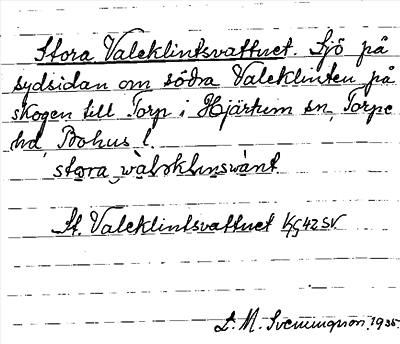 Stora Valeklintsvattnet. Sjö på
sydsidan om södra Valeklinten på
skogen till Torp i Hjärtum sn, Torpe
hd, Bohus l.
stora wàleklinswànt
St. Valeklintsvattnet 42 SV
L. M. Svenungsson, 1935.